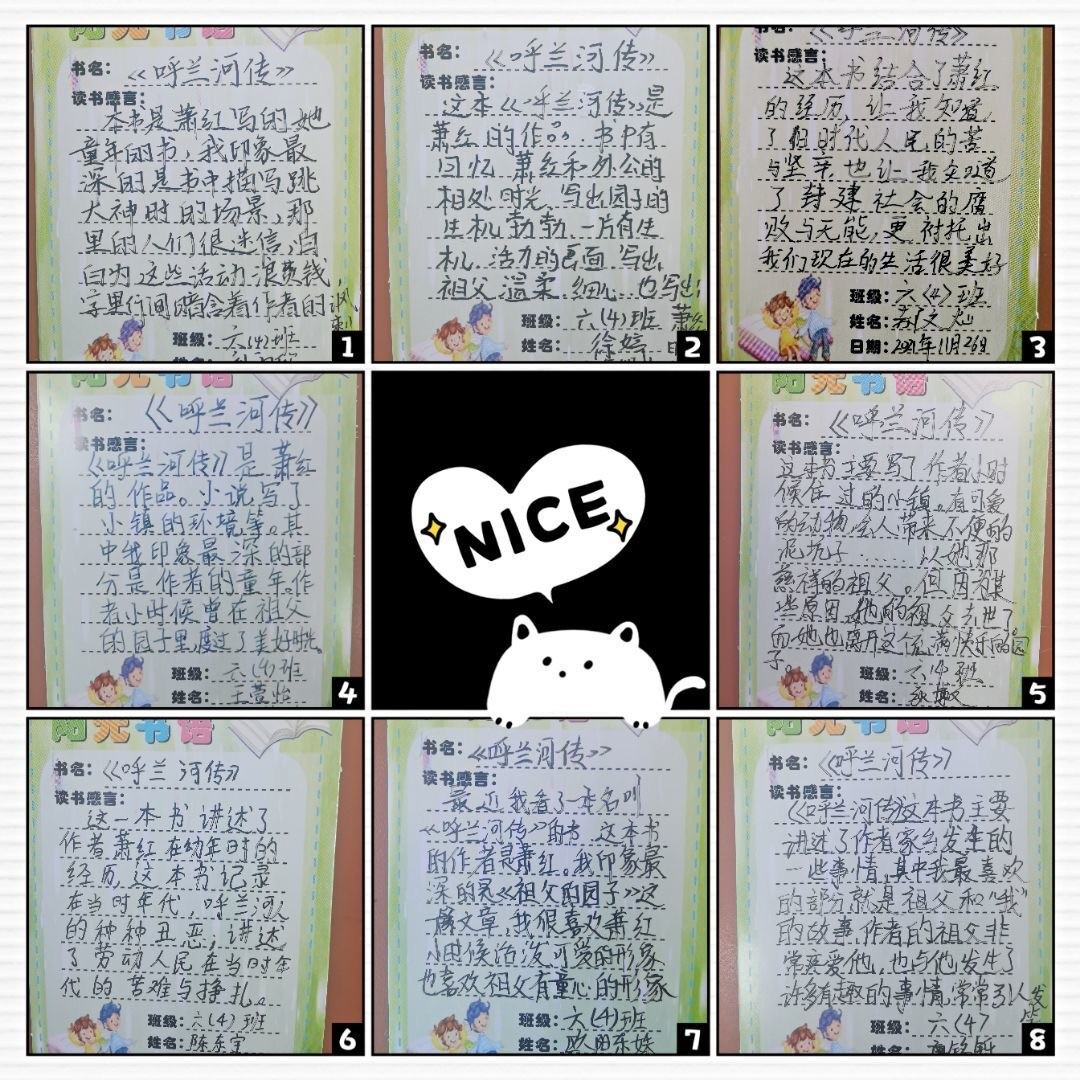 书名：《呼兰河传》
读书感言：
本书是萧红写的她
童年的书，我印象最
深的是书中描写跳
大神时的场景，那
里的人们很迷信，白
白为这些活动浪费钱，
字里行间暗含着作者的讽刺
班级：六(4)班
1
书名：《呼兰河传》
读书感言：
这本《呼兰河传》是
萧红的作品。书中有
回忆 萧红和外公的
相处时光，写出园子的
生机勃勃，一片有生
机、活力的画面 写出
祖父温柔、细心、也写出
班级：六(4)班
徐婷
2
《呼兰河传》
读书感言：
这本书结合了萧红
的经历，让我知道
了旧时代人民的苦
与坚辛，也让我知道
了封建社会的腐
败与无能，更衬托出
我们现在的生活很美好
班级：六(4)班
姓名：
日期：2021年11月26日
3
书名：《呼兰河传》
读书感言：
《呼兰河传》是萧红
的作品。小说写了
小镇的环境等。其
中我印象最深的部
分是作者的童年，作
者小时候曾在祖父
的园子里度过了美好时光
班级：六(4)班
姓名：王萱怡
4
NICE
阳光书语
书名：《呼兰河传》
读书感言：
这本书主要写了作者小时
候住过的小镇。有可爱
的动物，会人带来不便的
泥坑子……以她那
慈祥的祖父。但因为某
些原因，她的祖父去世了
而她也离开这个充满快乐的园
子。
班级：六(4)班
姓名：
5
阳光书语
书名：《呼兰河传》
读书感言：
这一本书讲述了
作者萧红在幼年时的
经历，这本书记录
在当时年代，呼兰河人
的种种丑恶，讲述
了劳动人民在当时年
代的苦难与挣扎。
班级：六(4)班
姓名：陈东宝
6
书名：《呼兰河传》
读书感言：
最近我看了一本名叫
《呼兰河传》的书，这本书
的作者是萧红。我印象最
深的是《祖父的园子》这
篇文章，我很喜欢萧红
小时候活泼可爱的形象
也喜欢祖父有童心的形象
班级：六(4)班
姓名：欧阳东姝
7
书名：《呼兰河传》
读书感言：
《呼兰河传》这本书主要
讲述了作者家乡发生的
一些事情，其中我最喜欢
的部分就是祖父和“我”
的故事，作者的祖父非
常疼爱他，也与他发生了
许多有趣的事情，常常引人发笑
班级：六(4)
姓名：
8